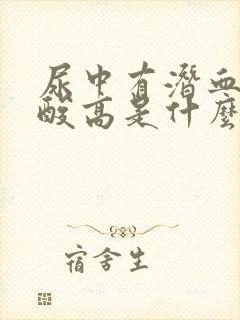 尿中有潜血
酸高是什麼
宿舍生